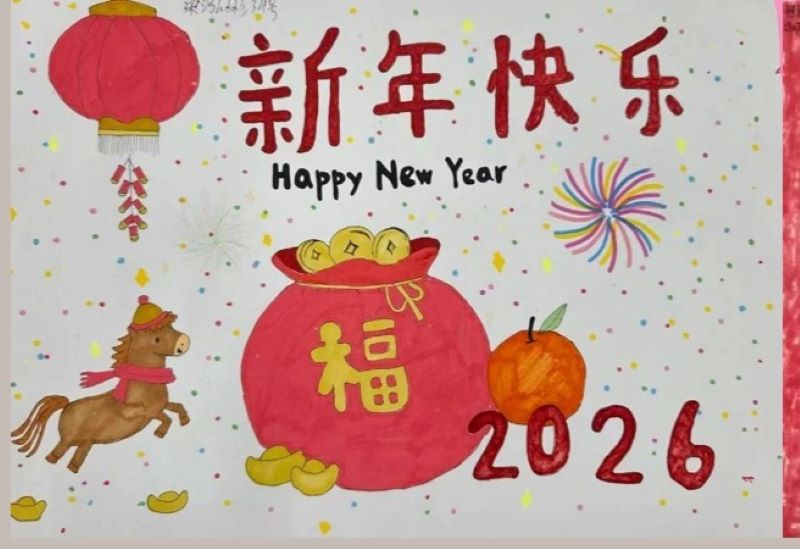 新年快乐
Happy New Year
福
2026